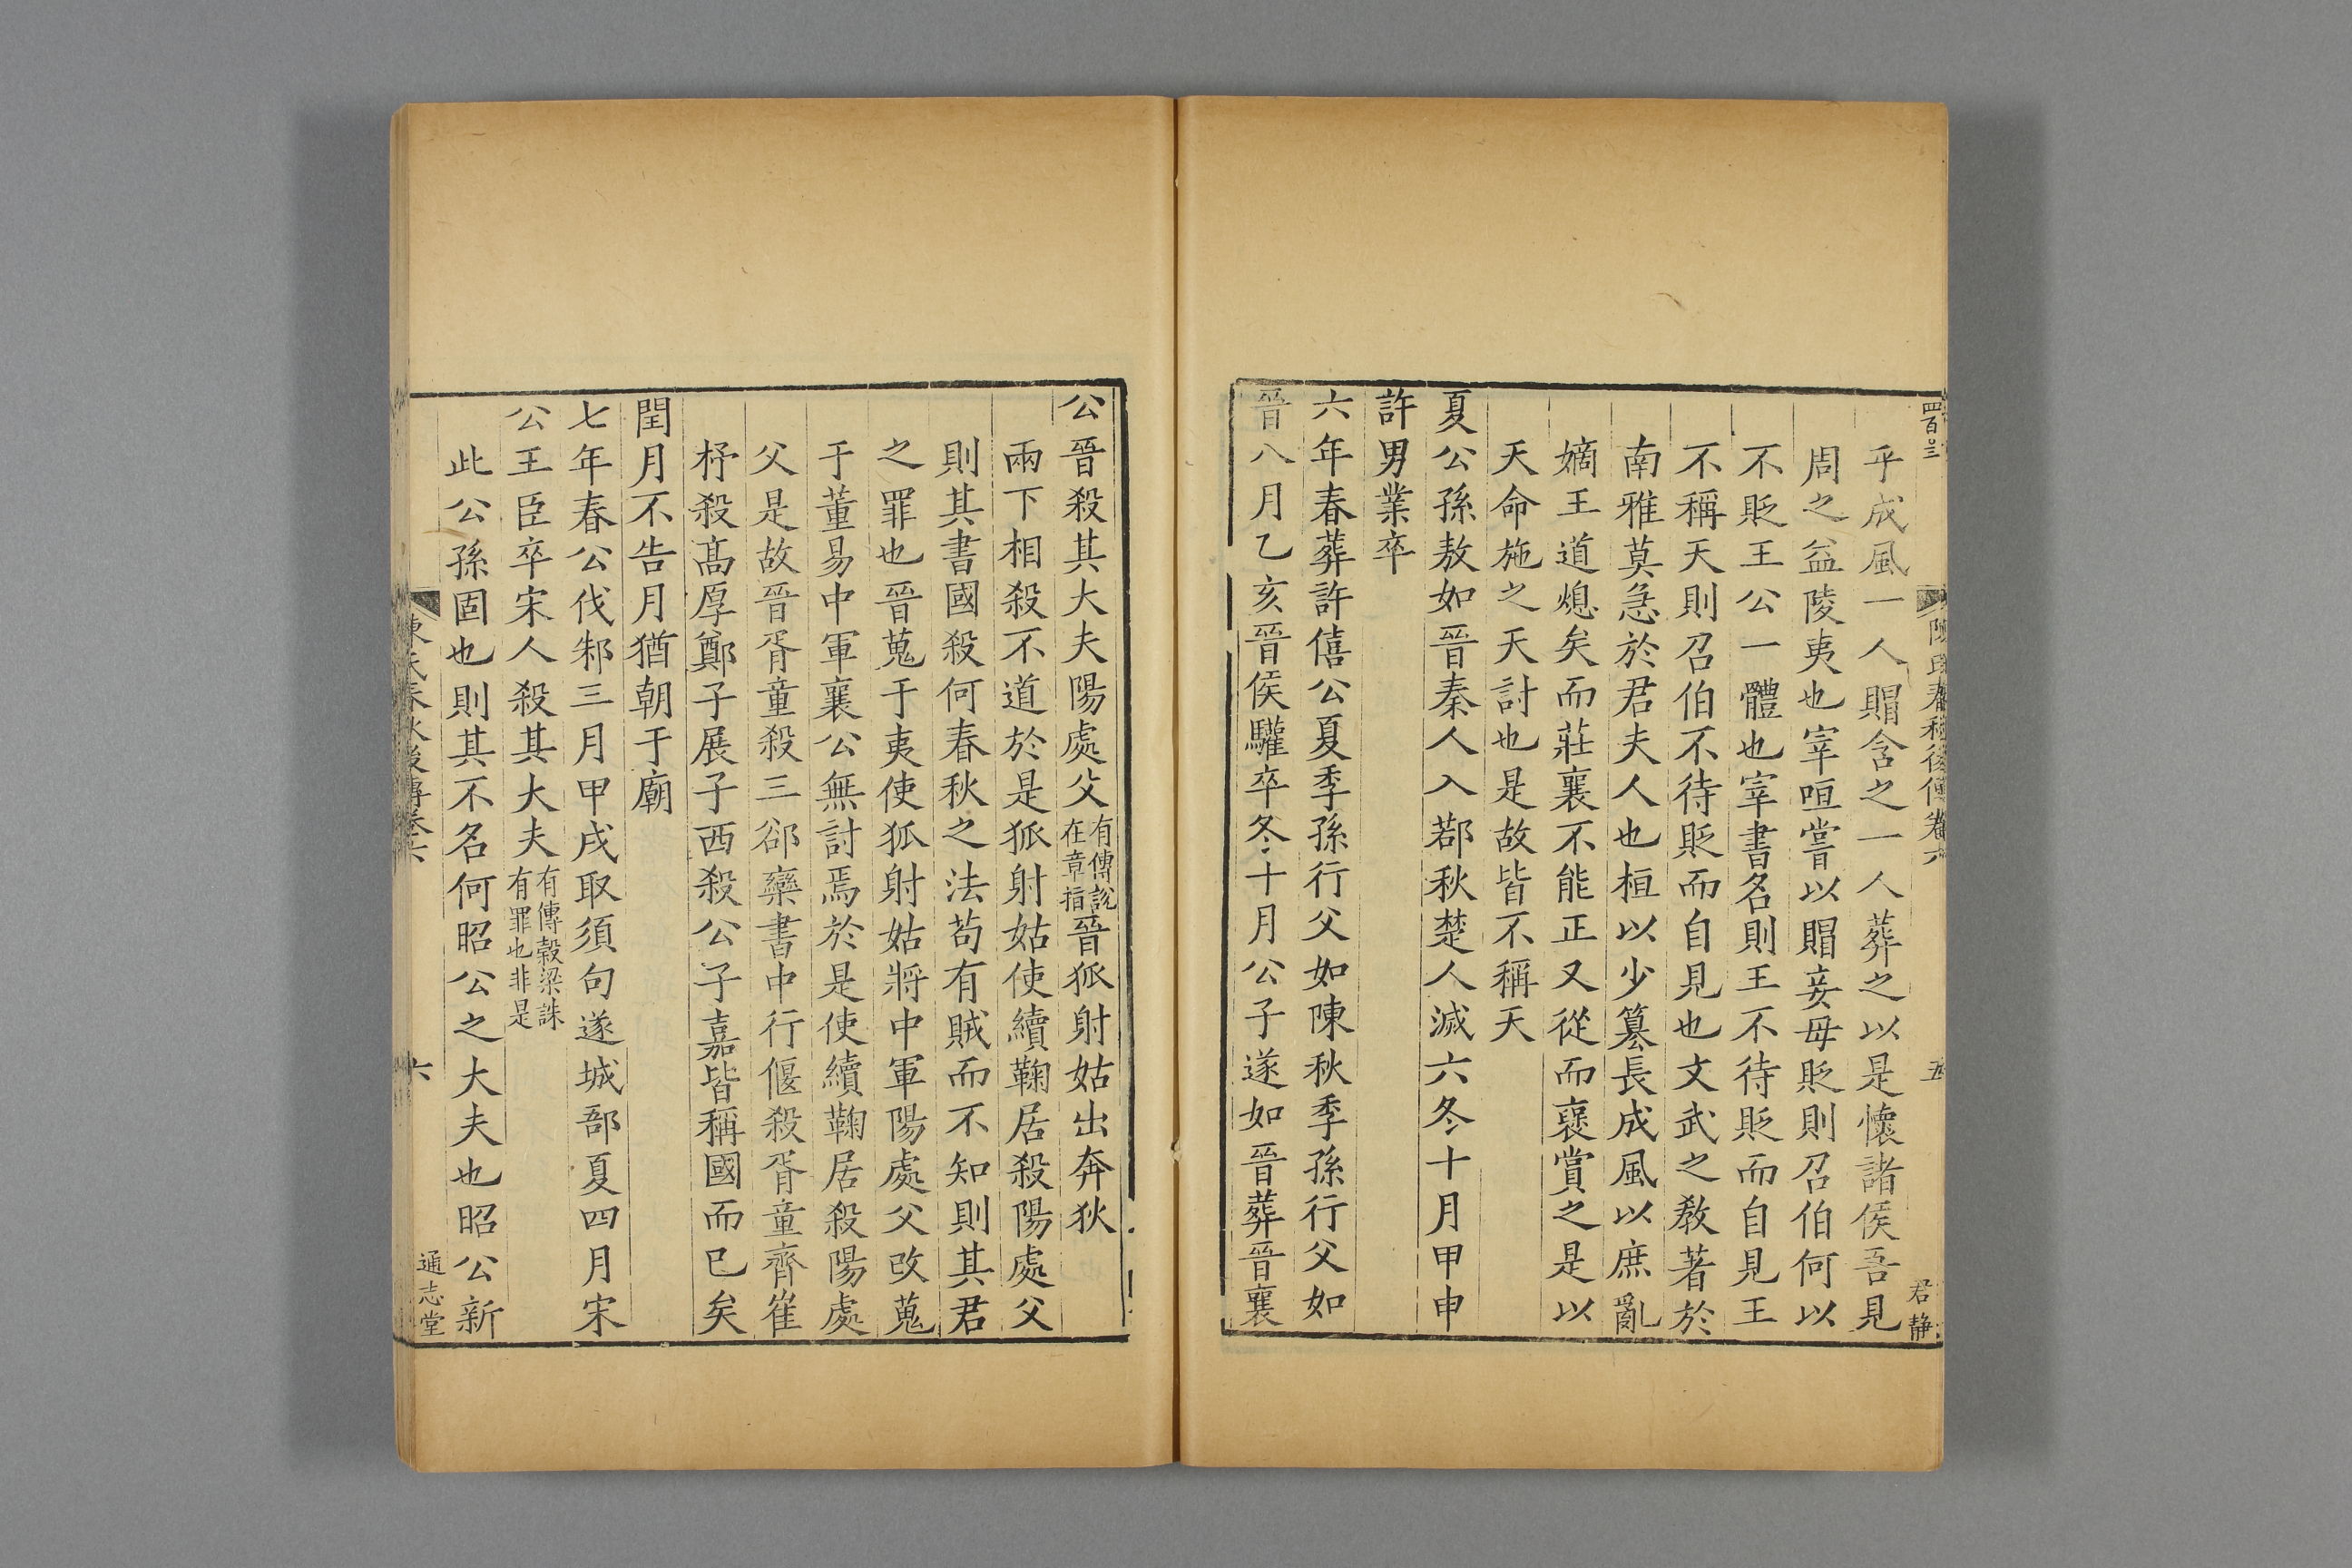 四百三
陳氏春秋後傳卷六
五
君靜
乎成風一人賵含之一人葬之以是懷諸侯吾見
周之益陵夷也宰咺嘗以賵妾毋貶則召伯何以
不貶王公一體也宰書名則王不待貶而自見王
不稱天則召伯不待貶而自見也文武之敎著於
南雅莫急於君夫人也桓以少簒長成風以庶亂
嫡王道熄矣而莊襄不能正又從而襃賞之是以
天命施之天討也是故皆不稱天
夏公孫敖如晉秦人入鄀秋楚人滅六冬十月甲申
許男業卒
六年春葬許僖公夏季孫行父如陳秋季孫行父如
晉八月乙亥晉侯驩卒冬十月公子遂如晉葬晉襄
公晉殺其大夫陽處父有傳說在章指晉狐射姑出奔狄
兩下相殺不道於是狐射姑使續鞫居殺陽處父
則其書國殺何春秋之法苟有賊而不知則其君
之罪也晉蒐于夷使狐射姑將中軍陽處父改蒐
于董易中軍襄公無討焉於是使續鞫居殺陽處
父是故晉胥童殺三郤欒書中行偃殺胥童齊崔
杼殺髙厚鄭子展子西殺公子嘉皆稱國而已矣
閏月不告月猶朝于廟
七年春公伐邾三月甲戌取須句遂城郚夏四月宋
公王臣卒宋人殺其大夫有傳榖梁誅有罪也非是
此公孫固也則其不名何昭公之大夫也昭公新
陳氏春秋後傳卷六
六
通志堂